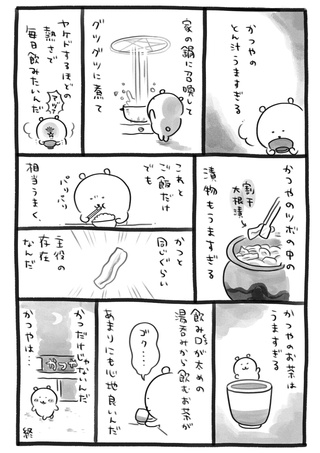 かつやの
とん汁うますぎる
家の鍋に召喚して
グツグツに煮て
ヤケドするほどの
熱さで
毎日飲みたいんだ
かつやのツボの中の
漬物もうますぎる
割干
大根漬
これと
ご飯だけ
でも
相当うまく、
パリパリ
かつと
同じぐらい
主役の
存在
なんだ
かつやのお茶は
うますぎる
飲み口が太めの
湯呑みから飲むお茶が
あまりにも心地良いんだ
ゴク…
かつだけじゃないんだ
かつやは…
かつや
終